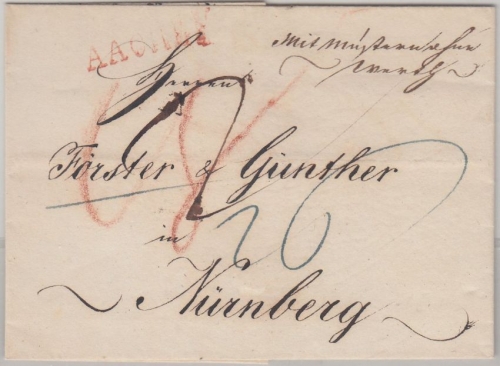 AACHEN
Mit Mustern ohne
Werth
Herren
Förster & Günther
in
Nürnberg